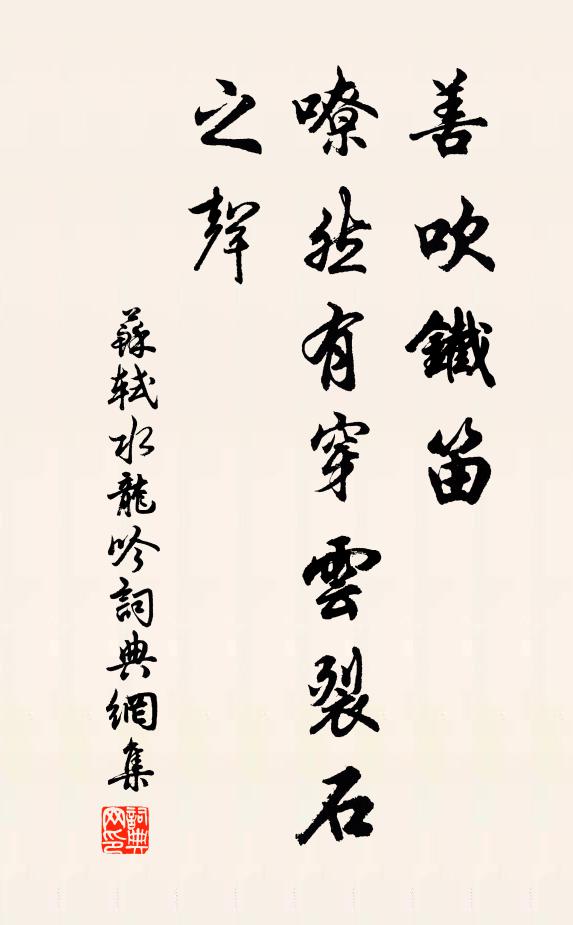 善吹鐵笛
嘹然有穿雲裂石
之聲
蘇軾水龍吟詞典網集
詞典
网印